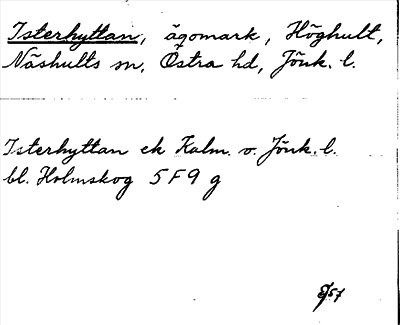 Isterhyttan, ägomark, Höghult,
Näshults sn, Östra hd, Jönk. l.
Isterhyttan ek Kalm. o. Jönk. l.
bl. Holmskog 5 F 9 g
57